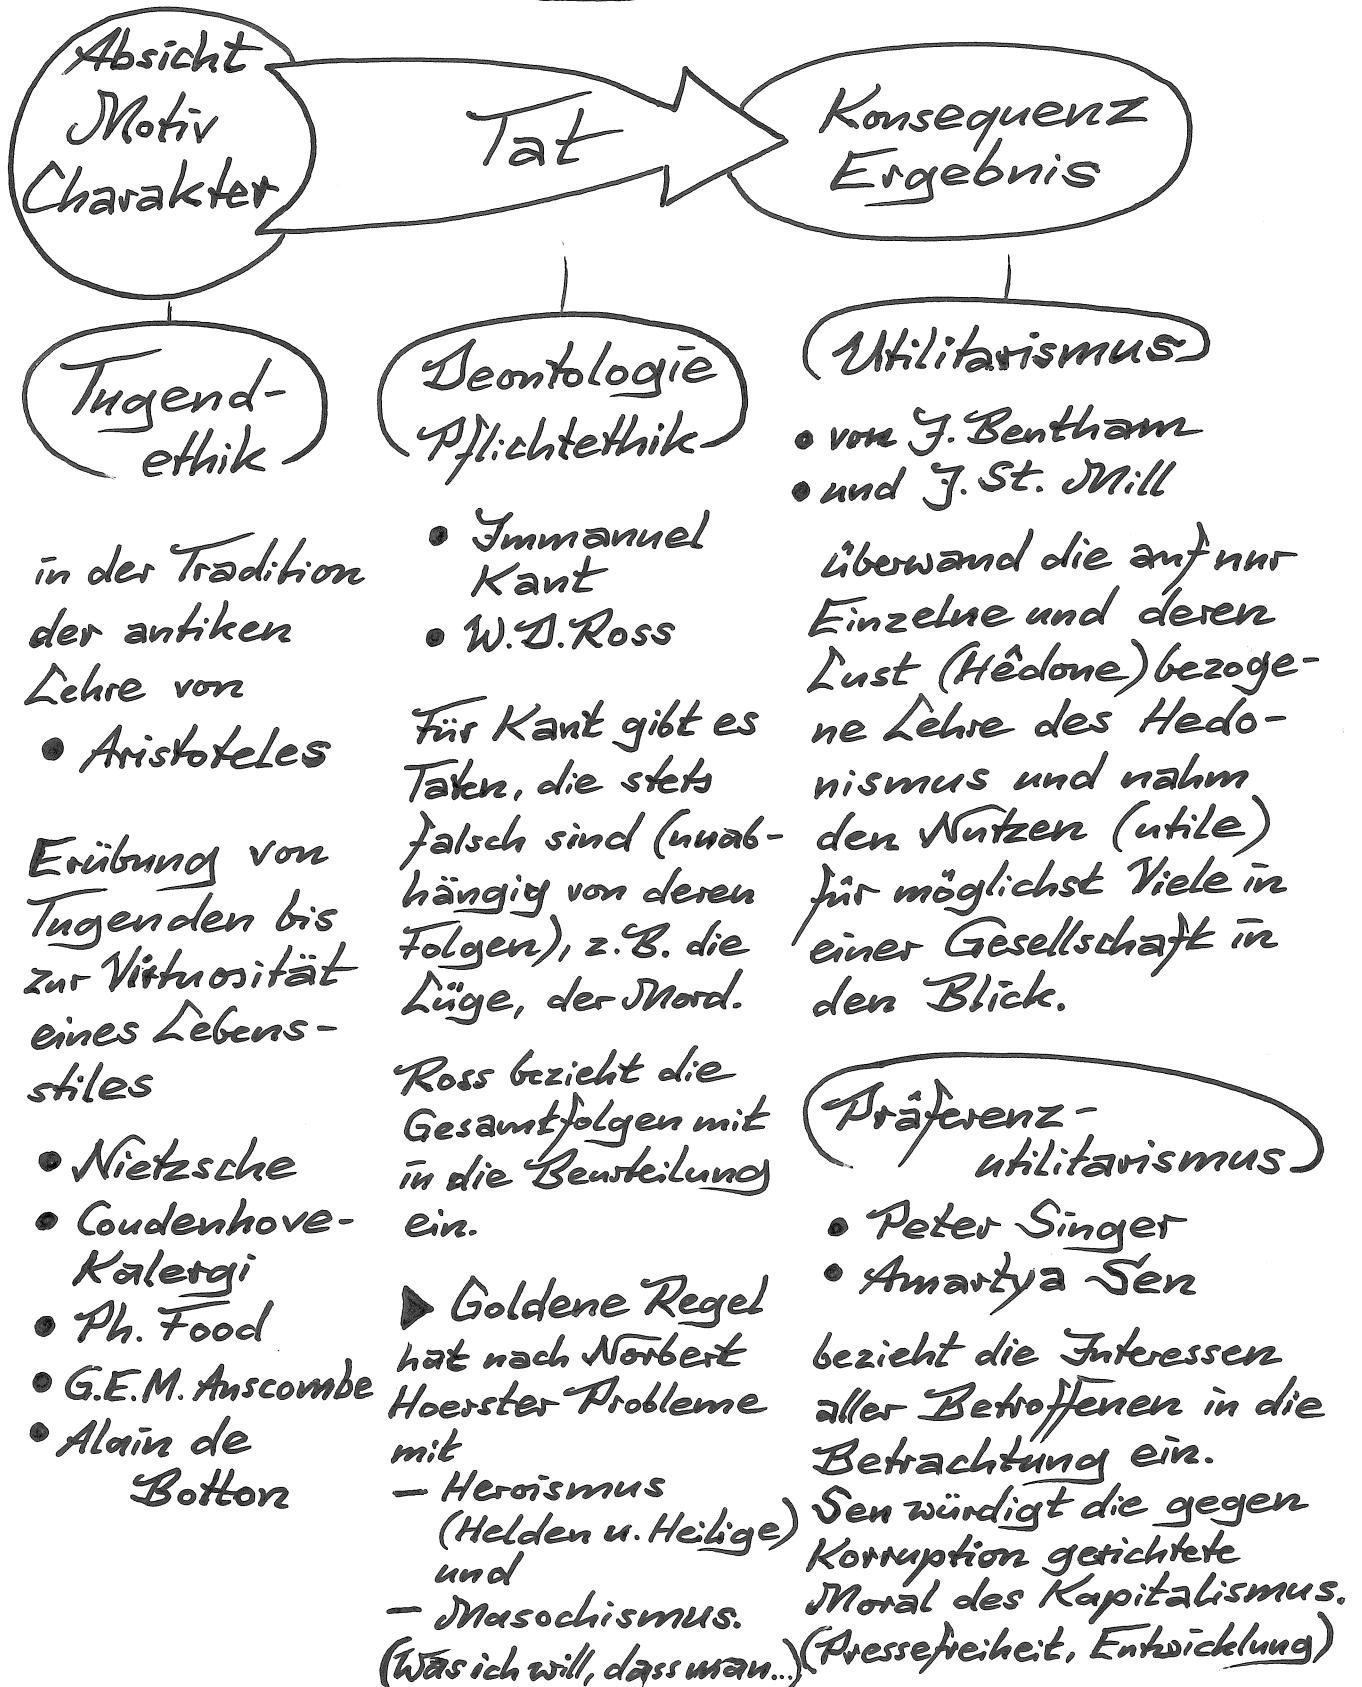 Absicht
Motiv
Charakter
Tat
Konsequenz
Ergebnis
Tugend-
ethik
in der Tradition
der antiken
Lehre von
• Aristoteles
Erübung von
Tugenden bis
zur Virtuosität
eines Lebens-
stiles
• Nietzsche
• Coudenhove-
Kalergi
• Ph. Food
• G.E.M. Anscombe
• Alain de
Botton
Deontologie
Pflichtethik
• Immanuel
Kant
• W.D. Ross
Für Kant gibt es
Taten, die stets
falsch sind (unab-
hängig von deren
Folgen), z.B. die
Lüge, der Mord.
Ross bezieht die
Gesamtfolgen mit
in die Beurteilung
ein.
▶ Goldene Regel
hat nach Norbert
Hoerster Probleme
mit
– Heroismus
(Helden u. Heilige)
und
– Masochismus.
(Was ich will, dass man...)
Utilitarismus
• von J. Bentham
• und J. St. Mill
überwand die auf nur
Einzelne und deren
Lust (Hêdone) bezoge-
ne Lehre des Hedo-
nismus und nahm
den Nutzen (utile)
für möglichst Viele in
einer Gesellschaft in
den Blick.
Präferenz-
utilitarismus
• Peter Singer
• Amartya Sen
bezieht die Interessen
aller Betroffenen in die
Betrachtung ein.
Sen würdigt die gegen
Korruption gerichtete
Moral des Kapitalismus.
(Pressefreiheit, Entwicklung)